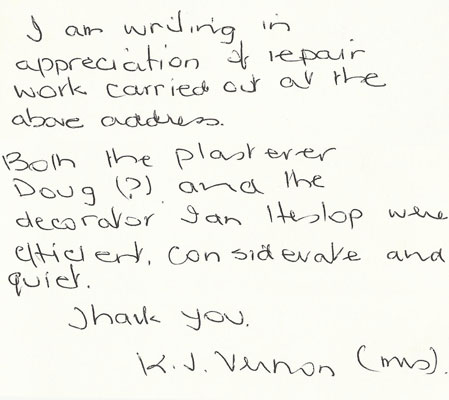 I am writing in
appreciation of repair
work carried out at the
above address.
Both the plasterer
Doug (?) and the
decorator Ian Heslop were
efficient, considerate and
quiet.
Thank you.
K. J. Vernon (mrs).